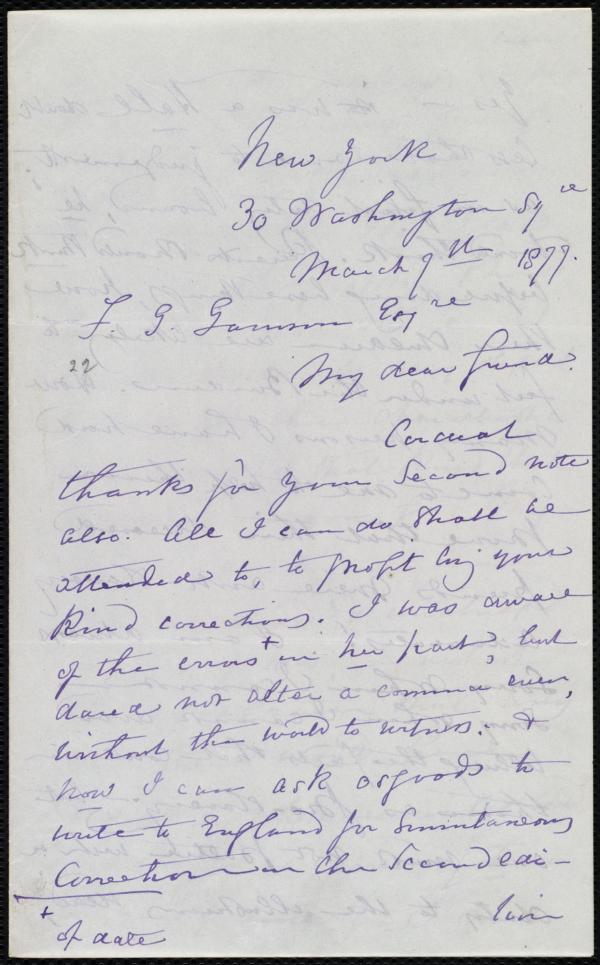 New York
30 Washington Sq re
March 9th 1877.
F. G. Garrison Esq re
22
My dear friend.
Cordial
thanks for your second note
also. All I can do shall be
attended to, to profit by your
kind corrections. I was aware
of the errors + in her part, but
dared not alter a comma even,
without the world to witness. &
now I can ask Osgoods to
write to England for simintaneous
Correction in the second edi-
tion
+
of date